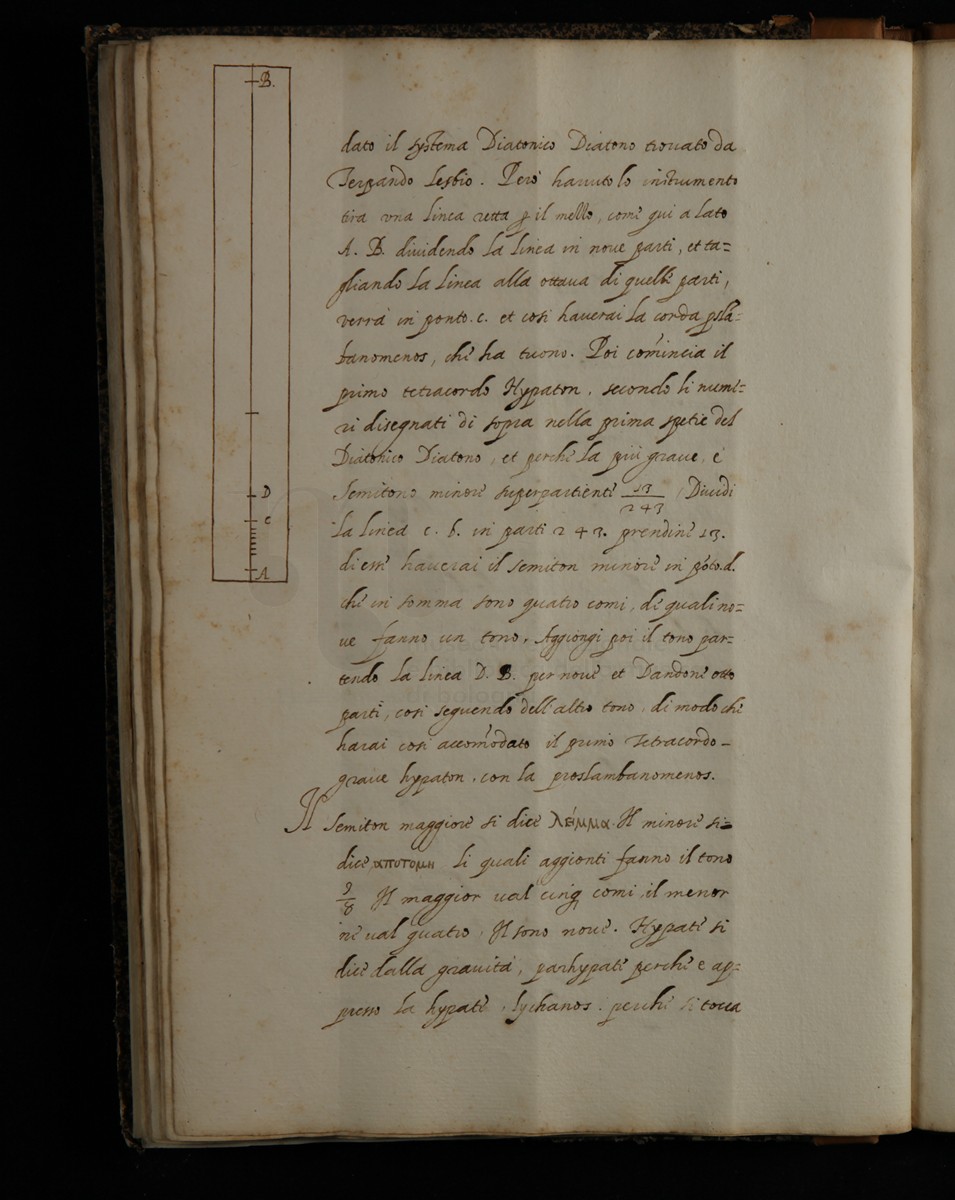 B.
dato il systema Diatonico Diatono trouato da
Terpando Lesbio. Però hauuto lo instrumento
tira vna linea retta p il mezzo, come qui a lato
A. B. diuidendo la linea in noue parti, et ta=
gliando la linea alla ottaua di quelle parti,
verrà in ponto. c. et cosi hauerai la corda psla=
banomenos, che ha tuono. Poi comincia il
primo tetracordo Hypaton, secondo li nume=
ri disegnati di sopra nella prima spetie del
Diatonico Diatono, et perche la più graue, è
D
Semitono minore superpartiente 13/243 Diuidi
C
la linea c. b. in parti 243. prendine 13.
di esse hauerai il semiton minore in pōto.d.
A
che in somma sono quatro comi, de quali no=
ue fanno un tono. Aggiongi poi il tono par=
tendo la linea D. B. per noue et Dandone otto
parti, cosi seguendo dell'altro tono, di modo che
harai cosi accommodato il primo Tetracordo-
graue hypaton, con la proslambanomenos.
Il Semiton maggiore si dice λέμμα. Il minore si=
dice αποτομη li quali aggionti fanno il tono
9/8 Il maggior ual cinq comi, il menor
ne ual quatro, Il sono noue. Hypate si
dice dalla grauità, parhypate perche e ap=
presso la hypate, lychanos. perche si tocca